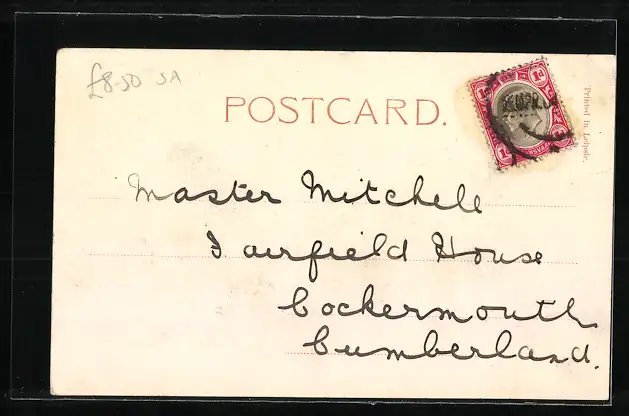 £8-50 SA
POSTCARD.
1d
Printed in Leipsic.
Master Mitchell
Fairfield House
Cockermouth
Cumberland.